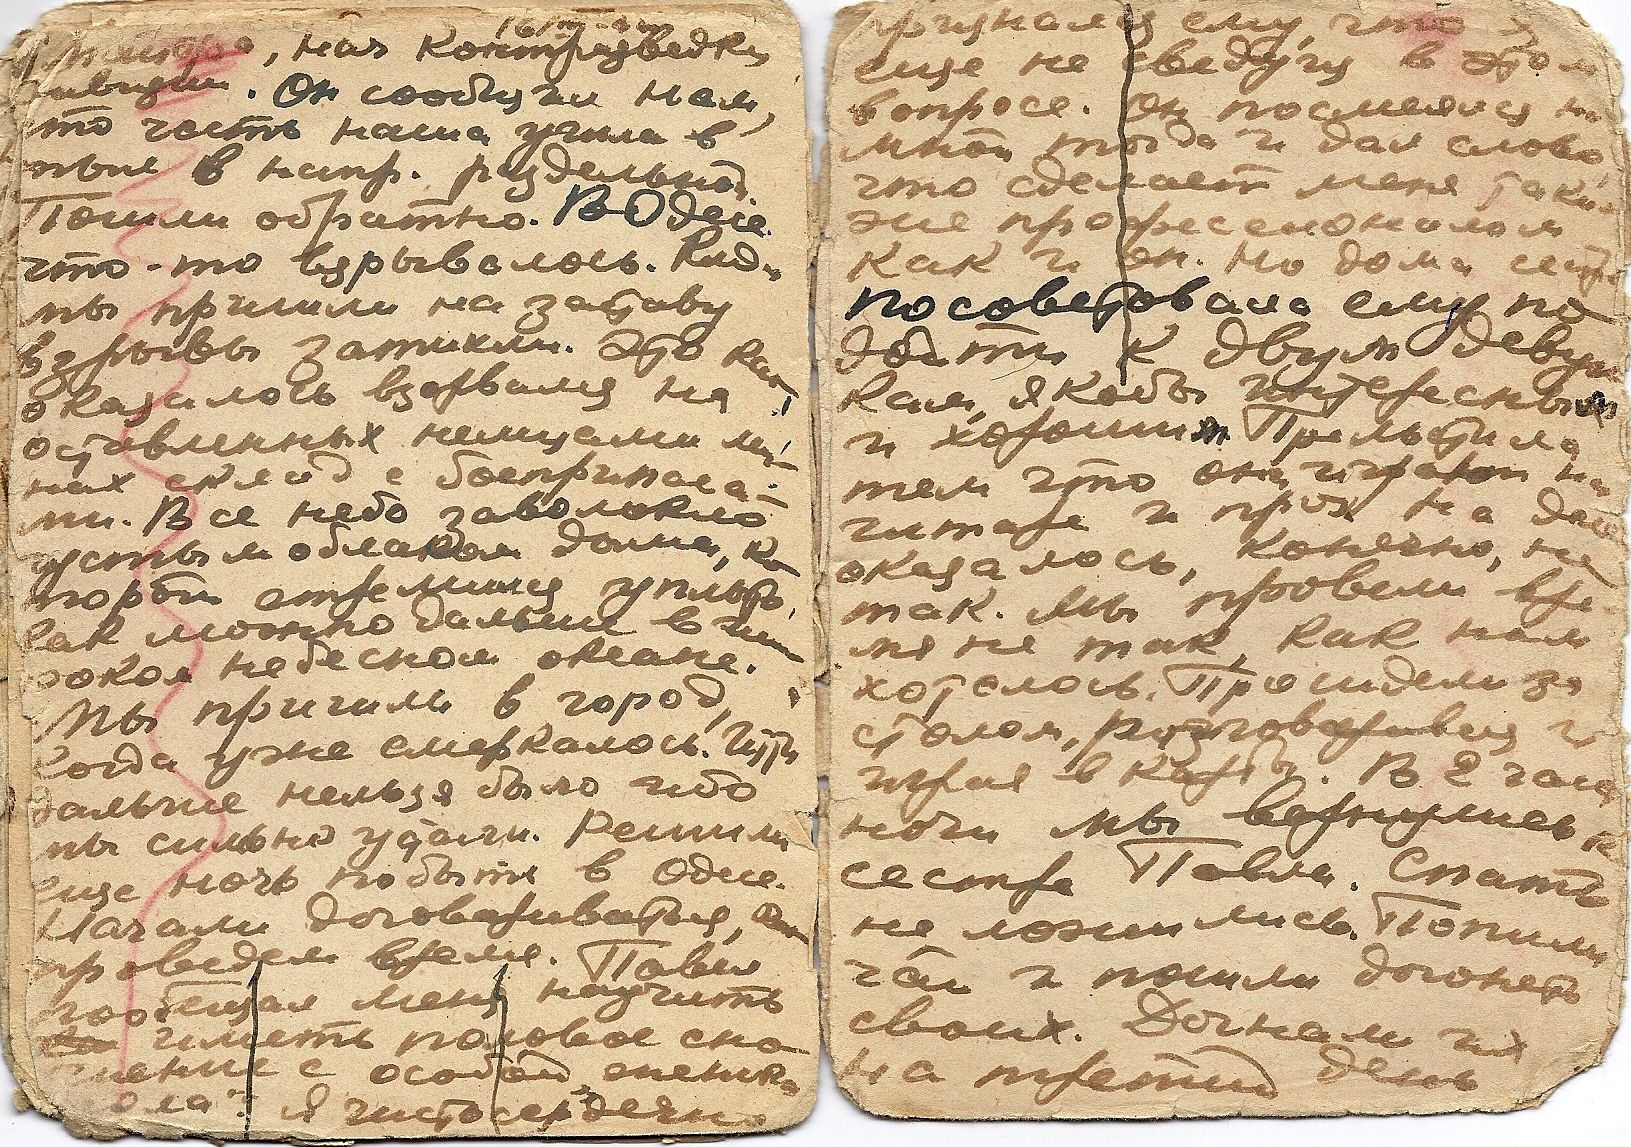 майора, нач контрразведки
дивизии. Он сообщил нам,
что часть наша ушла в
тыл в напр. Раздельной.
Пошли обратно. В Одессе
что-то взрывалось. Когда
мы пришли на заставу
взрывы затихли. Это как
оказалось взорвался на
оставленных немцами ми-
нах склад с боеприпаса-
ми. Все небо заволокло
густым облаком дыма, ко-
торый стремился уплыть
как можно дальше в ши-
роком небесном океане.
Мы пришли в город,
когда уже смеркалось. Идти
дальше нельзя было ибо
мы сильно устали. Решили
еще ночь побыть в Одессе.
Начали договариваться, как
проведем время. Павел
пообещал меня научить
иметь половое сно-
шение с особой женско-
пола. Я чистосердечно
признался ему, что я
еще не сведущ в этом
вопросе. Он посмеялся надо
мной тогда и дал слово
что сделает меня таким
же профессионалом
как и он. Но дома сестра
посоветовала ему по
дойти к двум девуш
кам, якобы интересным
и хорошим. Прельстила
тем что они играют на
гитаре и проч. На деле
оказалось, конечно, не
так. Мы провели вре-
мя не так, как нам
хотелось. Просидели за
столом, разговаривая и
играя в карты. В 2 часа
ночи мы вернулись к
сестре Павла. Спать
не ложились. Попили
чай и пошли догонять
своих. Догнали их
на третий день